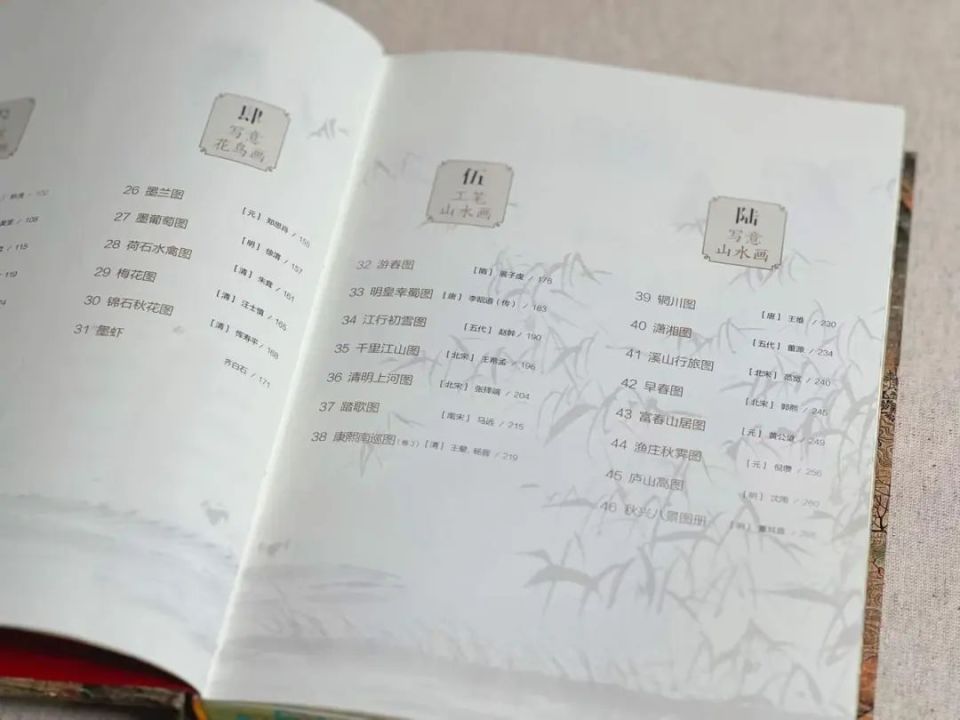 102
108
115
119
肆
写意
花鸟画
26 墨兰图
[元] 郑思肖 / 155
27 墨葡萄图
[明] 徐渭 / 157
28 荷石水禽图
[清] 朱耷 / 161
29 梅花图
[清] 汪士慎 / 165
30 锦石秋花图
[清] 恽寿平 / 168
31 墨虾
齐白石 / 171
伍
工笔
山水画
32 游春图
[隋] 展子虔 / 178
33 明皇幸蜀图
[唐] 李昭道（传） / 183
34 江行初雪图
[五代] 赵幹 / 190
35 千里江山图
[北宋] 王希孟 / 196
36 清明上河图
[北宋] 张择端 / 204
37 踏歌图
[南宋] 马远 / 215
38 康熙南巡图
[清] 王翚、杨晋 / 219
陆
写意
山水画
39 辋川图
[唐] 王维 / 230
40 潇湘图
[五代] 董源 / 234
41 溪山行旅图
[北宋] 范宽 / 240
42 早春图
[北宋] 郭熙 / 245
43 富春山居图
[元] 黄公望 / 249
44 渔庄秋霁图
[元] 倪瓒 / 256
45 庐山高图
[明] 沈周 / 260
46 秋兴八景图册
[明] 董其昌